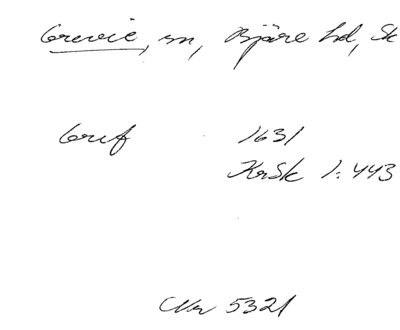 Grevie, sn, Bjäre hd, Sk
Gref 1631
KrSk 1:443
5321